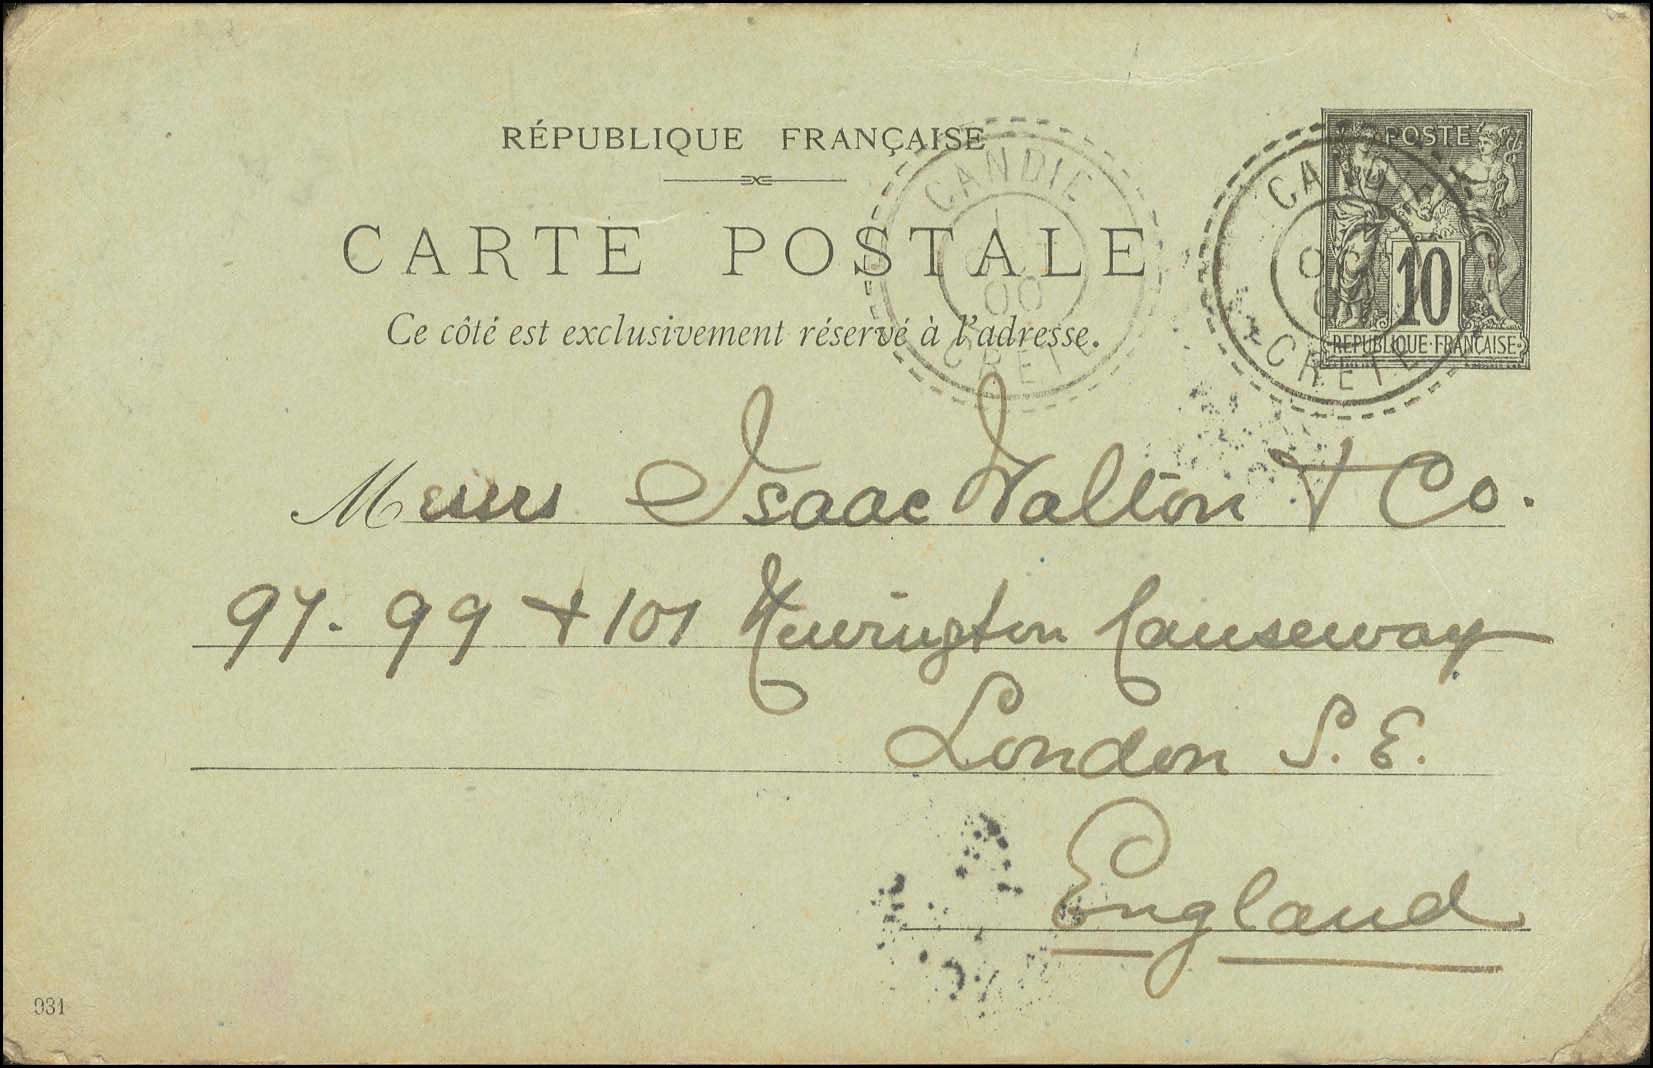 RÉPUBLIQUE FRANÇAISE
CARTE POSTALE
Ce côté est exclusivement réservé à l'adresse.
CANDIE
00
CRETE
POSTE
10
REPUBLIQUE·FRANÇAISE
CRETE
Messrs Isaac Walton & Co.
97. 99 & 101 Newington Causeway
London S.E.
England
931